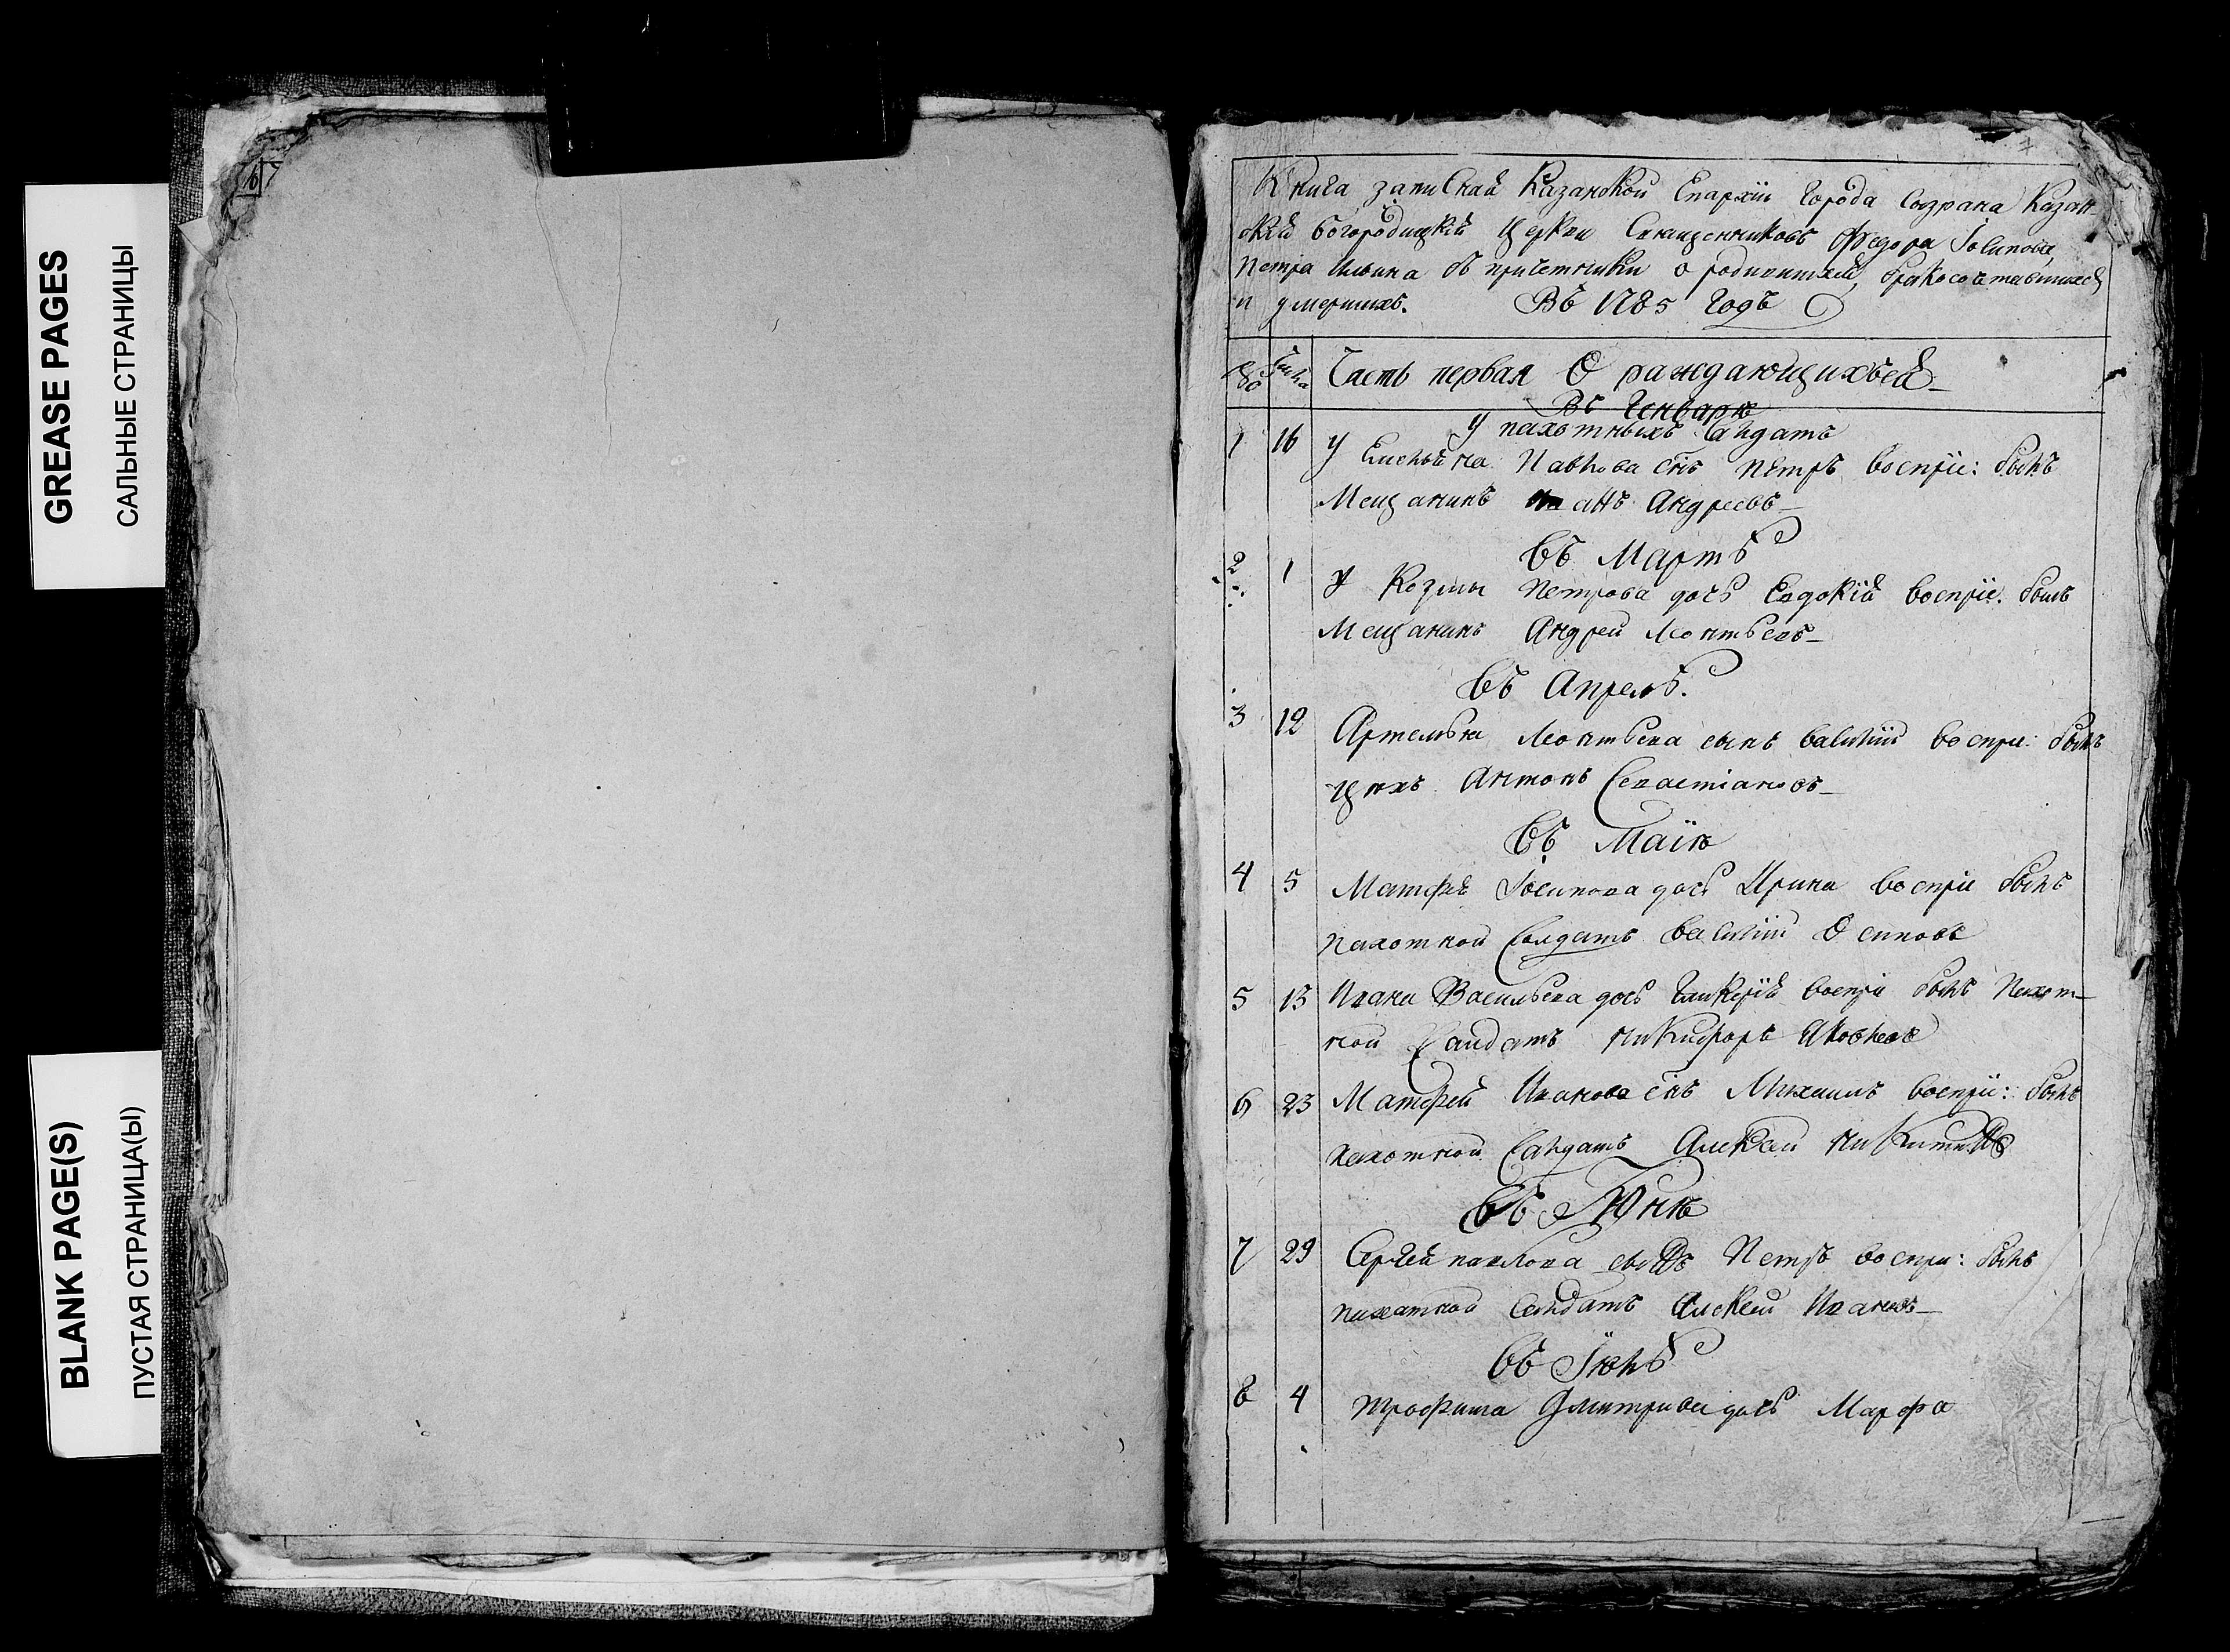 GREASE PAGES
САЛЬНЫЕ СТРАНИЦЫ
BLANK PAGE(S)
ПУСТАЯ СТРАНИЦА(Ы)
7
Книга записная Казанской Епархіи города Сызрана Казан-
скія богородицкія церкви Священниковъ Федора Іосипова,
Петра Ильина съ причетники о родившихся, бракосочетавшихся
и умершихъ. Въ 1785 годъ
Числа Часть первая О раждающихъся
Въ Генварѣ
у пахотныхъ салдатъ
1 16 У Емельяна Павлова снъ Петръ воспріе: былъ
Мещанинъ Иванъ Андреевъ
Въ Мартѣ
2 1 У Козмы Петрова дочь Евдокія воспріе: былъ
Мещанинъ Андрей Леонтьевъ
Въ Апрелѣ.
3 12 Артемья Леонтьева сынъ василіи воспри: былъ
цехъ Антонъ Севастіановъ
Въ Маіѣ
4 5 Матфѣ Іосипова дочь Ирина воспріе былъ
пахотной Солдатъ василіи Осиповъ
5 13 Ивана Васильева дочь Гликерія воспріе былъ Пахот-
ной Салдатъ Никифоръ Яковлевъ
6 23 Матфей Иванова снъ Михаилъ воспріе: былъ
пахотной Салдатъ Алексеи Никитинъ
Въ Іюнѣ
7 29 Сергей павлова сынъ Петръ воспри: былъ
пахатной Салдатъ Алексеи Ивановъ
Въ Іюлѣ
8 4 Трофима Дмитрива дочь Марфа